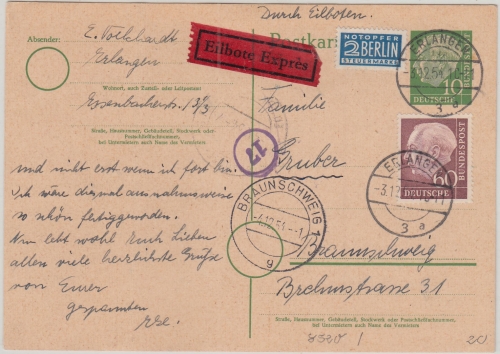 Durch Eilboten.
Absender:
E. Volkhardt
Erlangen
Wohnort, auch Zustell- oder Leitpostamt
Essenbacherstr. 3/3
Straße, Hausnummer, Gebäudeteil, Stockwerk oder Postschließfachnummer,
bei Untermietern auch Name des Vermieters
Eilbote Exprès
Postkar
NOTOPFER
2 BERLIN
STEUERMARKE
ERLANGEN
10
DEUTSCHE
BUNDESPOST
Familie
Gruber
17
ERLANGEN
3 a
60
DEUTSCHE
BUNDESPOST
BRAUNSCHWEIG 1
g
Braunschweig
Brehmstrasse 31
Straße, Hausnummer, Gebäudeteil, Stockwerk oder Postschließfachnummer,
bei Untermietern auch Name des Vermieters
und nicht erst wenn ich fort bin.
Ich wäre diesmal ausnahmsweise
so schön fertig geworden.
Nun lebt wohl Euch Lieben
allen viele herzlichste Grüße
von Eurer
gespannten
20